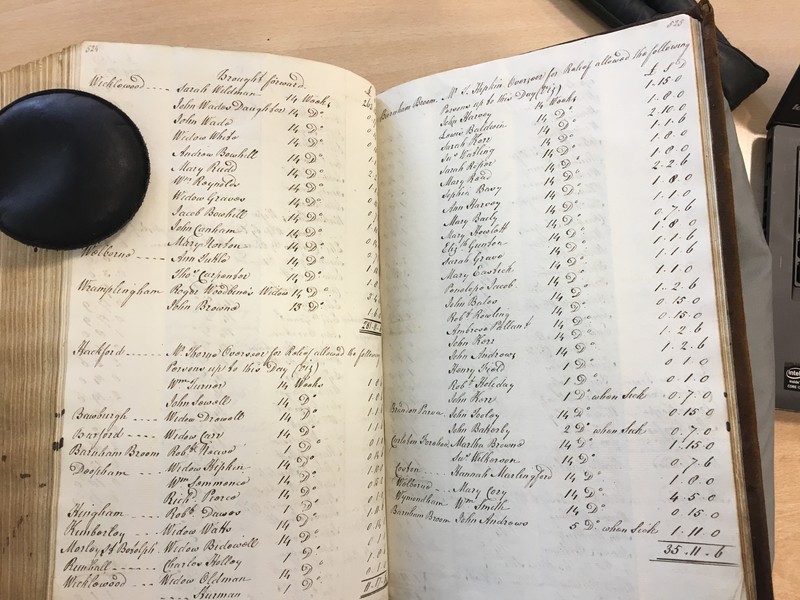 524
Brought forward
Wicklewood ---- Sarah Weldman 14 Weeks
John Wades Daughter 14 Do
John Wade 14 Do
Widow White 14 Do
Andrew Bowhill 14 Do
Mary Rudd 14 Do
Wm Reynolds 14 Do
Widow Graves 14 Do
Jacob Bowhill 14 Do
John Canham 14 Do
Mary Norton 14 Do
Welborne ---- Ann 14 Do
Thos Carpenter 14 Do
Wramplingham Roger Woodbines Widow 14 Do
John Browne 13 Do
Hackford ---- Mr Thorne Overseer for Relief allowed the following
Persons up to this Day (Viz)
Wm Turner 14 Weeks
John Sewell 14 Do
Bawburgh ---- Widow Drewell 14 Do
Barford ---- Widow Carr 14 Do
Barnham Broom Robt 1 Do
Deopham ---- Widow Hipkin 14 Do
Wm Lemmence 14 Do
Richd Pierce 14 Do
Hingham ---- Robt Dawes 1 Do
Kimberley Widow Watts 14 Do
Morley St Botolph Widow Bidewell 14 Do
Runhall ---- Charles Holley 1 Do
Wicklewood ---- Widow Oldman 14 Do
---- Hurman 1 Do
525
Barnham Broom. Mr S. Hipkin Overseer for Relief allowed the following
Persons up to this Day (Viz) £ s d
John Harvey 14 Weeks 1.15.0
Lewis Baldwin 14 Do 1.8.0
Sarah Kerr 14 Do 2.10.0
Susn Watling 14 Do 1.1.6
Sarah Roper 14 Do 1.8.0
Mary Read 14 Do 1.8.0
Sophia Basy 14 Do 2.2.6
Ann Harvey 14 Do 1.8.0
Mary Barly 14 Do 1.1.0
Mary Howlett 14 Do 0.7.6
Elizth Gunton 14 Do 1.8.0
Sarah Grave 14 Do 1.1.6
Mary Emrick 14 Do 1.1.6
Penelope Jacob 14 Do 1.1.0
John Bales 14 Do 1.2.6
Robt Rowling 14 Do 0.15.0
Ambrose Pallant 14 Do 0.15.0
John Kerr 14 Do 1.2.6
John Andrews 14 Do 1.2.6
Henry 1 Do 0.1.0
Robt Holiday 1 Do 0.1.0
John Kerr 1 Do when Sick 0.7.0
Brandon Parva John Tooley 14 Do 0.15.0
John Bakerby 2 Do when Sick 0.7.0
Carleton Forehoe Martha Browne 14 Do 1.15.0
Susn Wilkerson 14 Do 0.7.6
Coston ---- Hannah Marlingford 14 Do 1.8.0
Welborne ---- Mary Cory 14 Do 4.5.0
Wymondham Wm Smith 14 Do 0.15.0
Barnham Broom John Andrews 5 Do when Sick 1.11.0
35.11.6